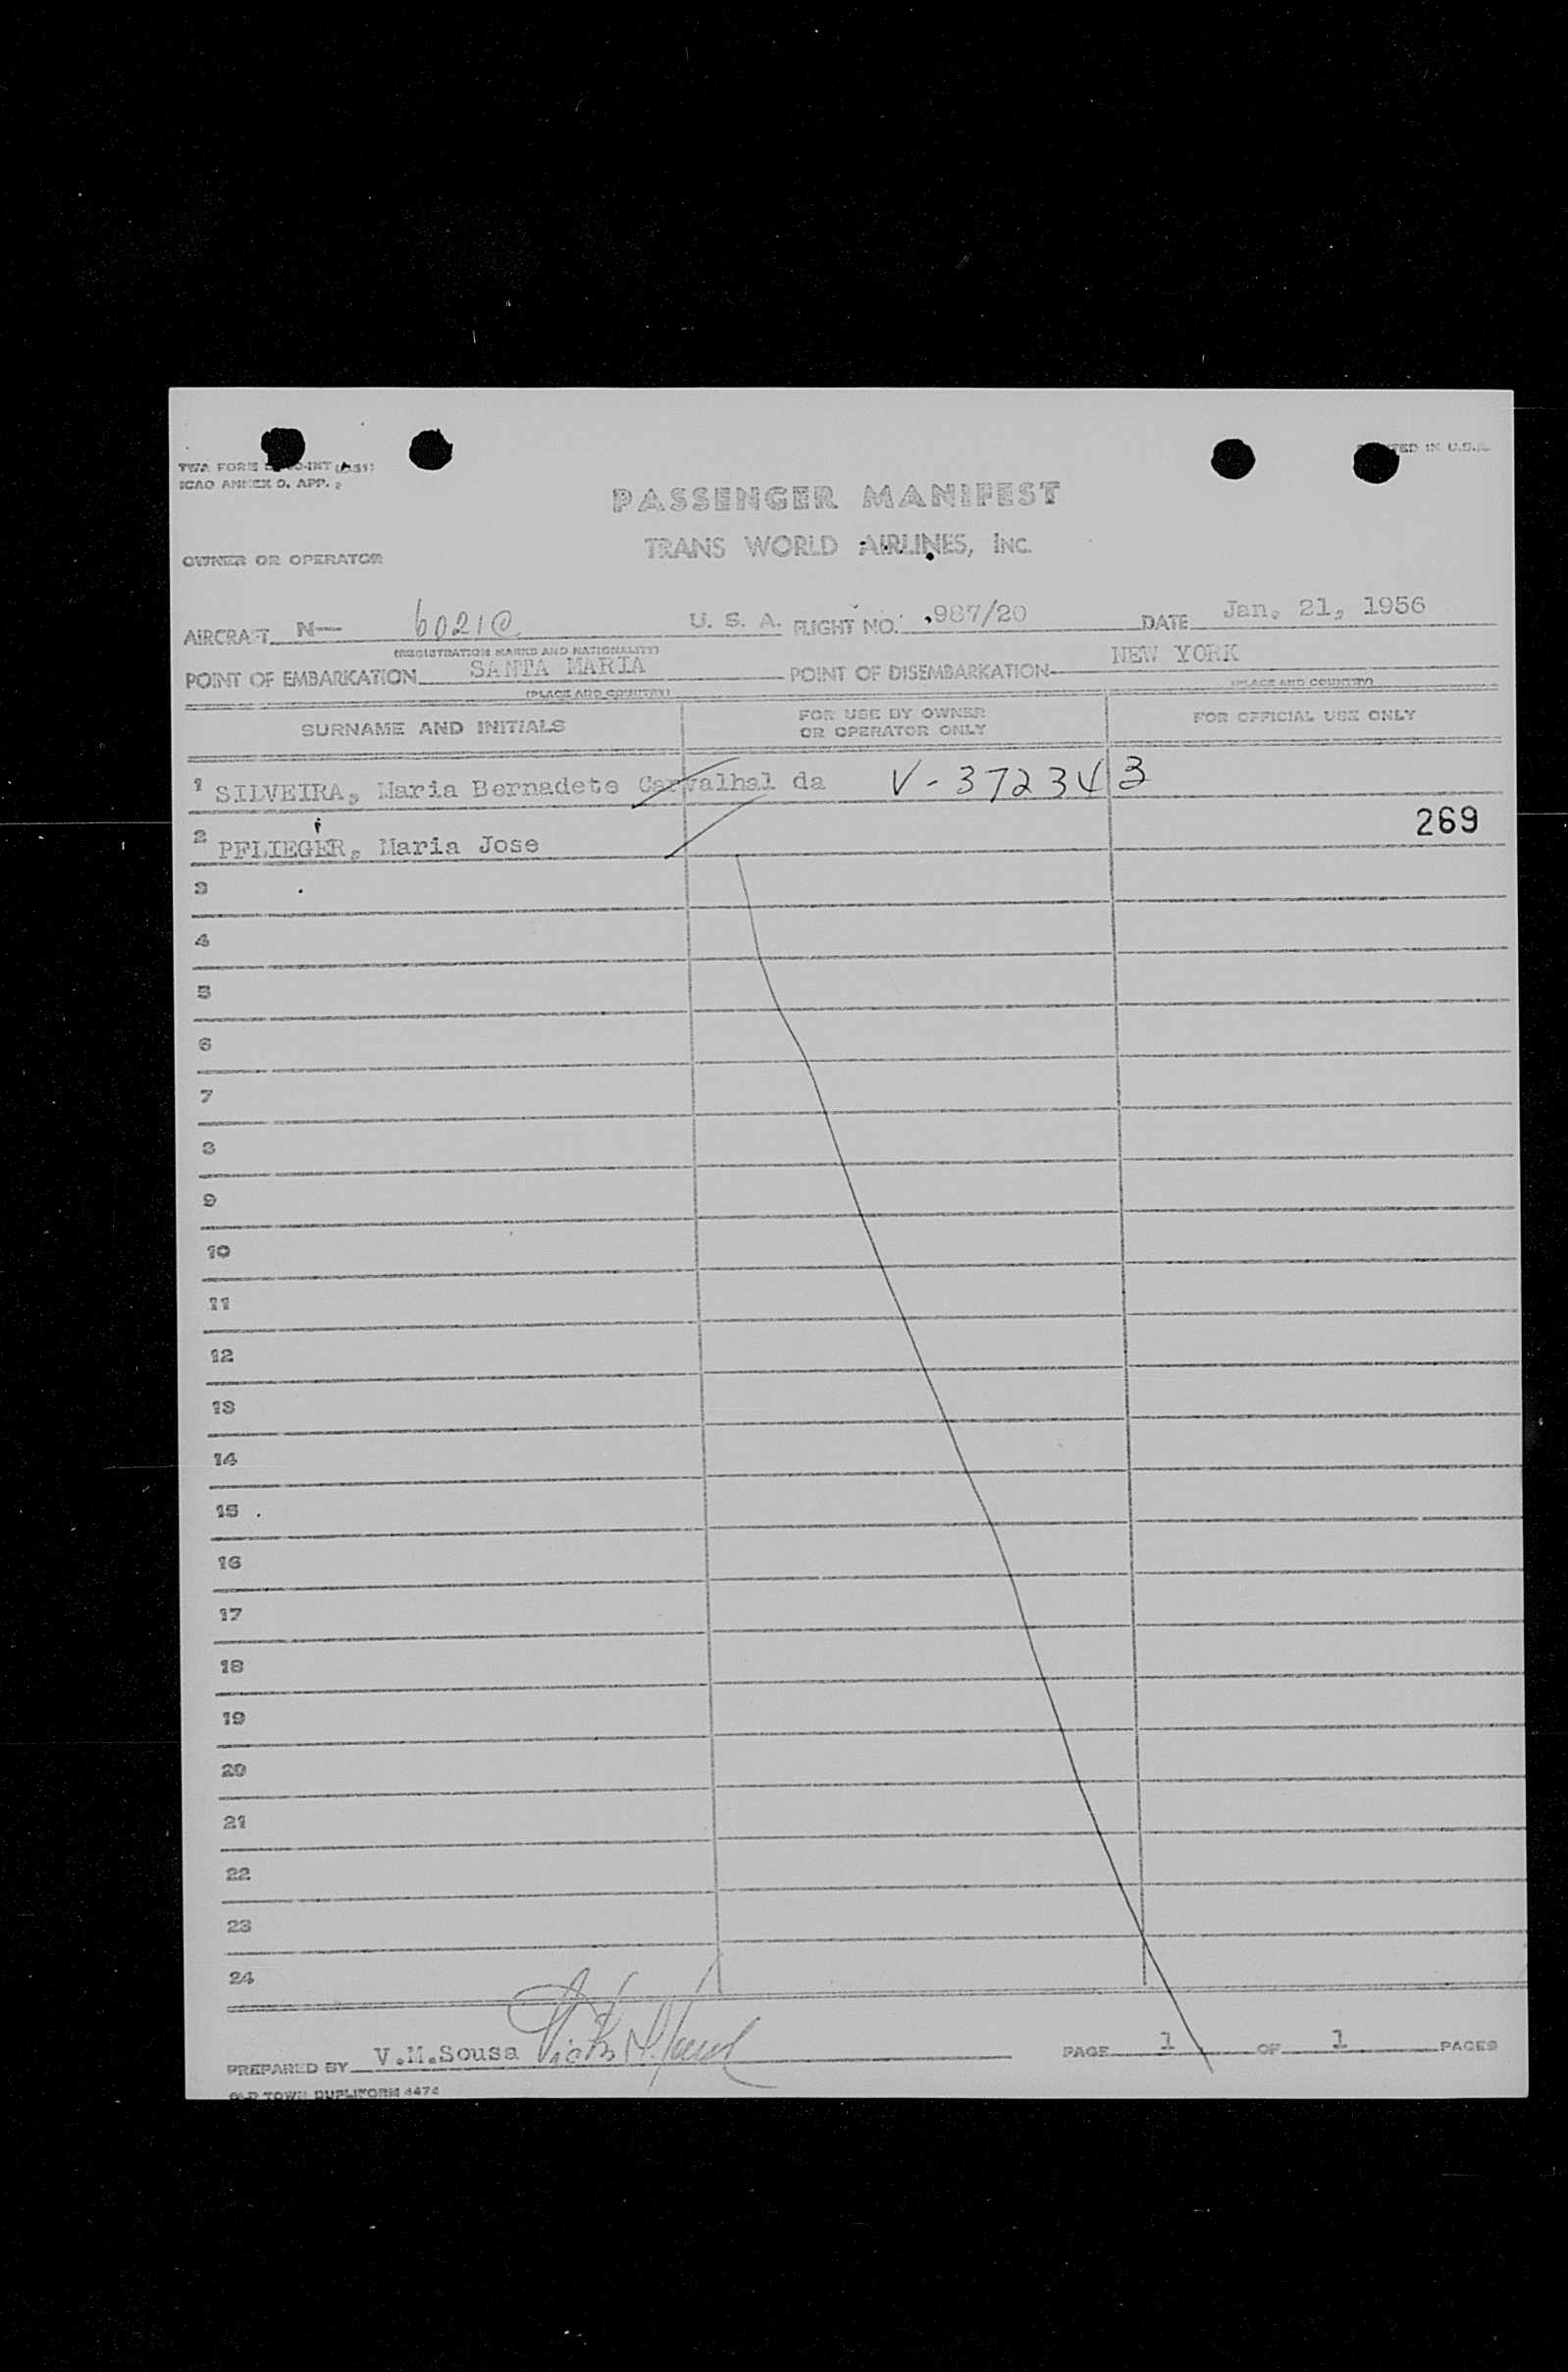 TWA FORM
PRINTED IN U.S.A.
ICAO ANNEX 9, APP. 2
PASSENGER MANIFEST
OWNER OR OPERATOR
TRANS WORLD AIRLINES, INC.
AIRCRAFT N— 6021C U. S. A. FLIGHT NO. 987/20 DATE Jan. 21, 1956
(REGISTRATION MARKS AND NATIONALITY)
POINT OF EMBARKATION SANTA MARIA POINT OF DISEMBARKATION NEW YORK
(PLACE AND COUNTRY) (PLACE AND COUNTRY)
SURNAME AND INITIALS FOR USE BY OWNER OR OPERATOR ONLY FOR OFFICIAL USE ONLY
1 SILVEIRA, Maria Bernadete Carvalhal da V-372343
269
2 PFLIEGER, Maria Jose
3
4
5
6
7
8
9
10
11
12
13
14
15
16
17
18
19
20
21
22
23
24
PREPARED BY V.M.Sousa PAGE 1 OF 1 PAGES
OLD TOWN DUPLIFORM 4474